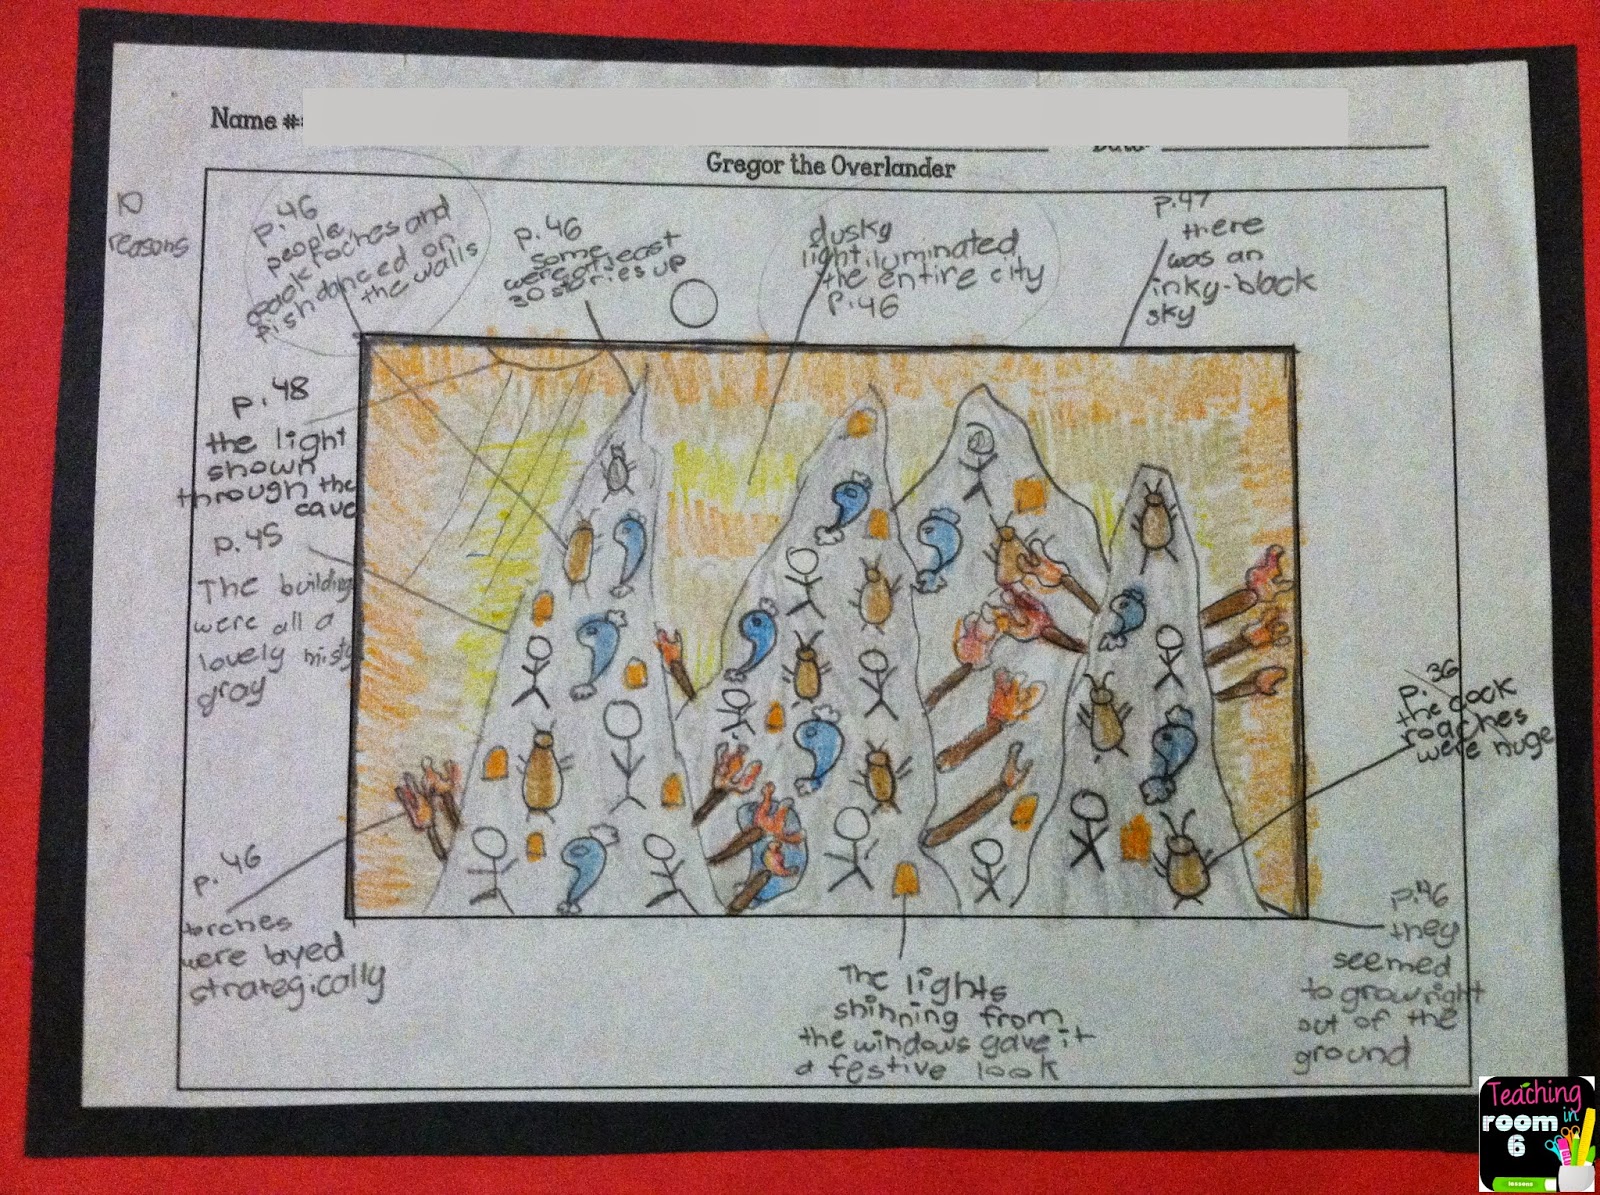 Name #
Date
Gregor the Overlander
10
reasons
p.46
people,
cock roches and
fish danced on
the walls
p.46
some
were at least
30 stories up
dusky
light iluminated
the entire city
p.46
p.47
there
was an
inky-black
sky
p.48
the light
shown
through the
cave
p.45
The building
were all a
lovely misty
gray
p.36
the cock
roaches
were huge
p.46
torches
were layed
strategically
The lights
shinning from
the windows gave it
a festive look
p.46
they
seemed
to grow right
out of the
ground
Teaching
in
room
6
lessons